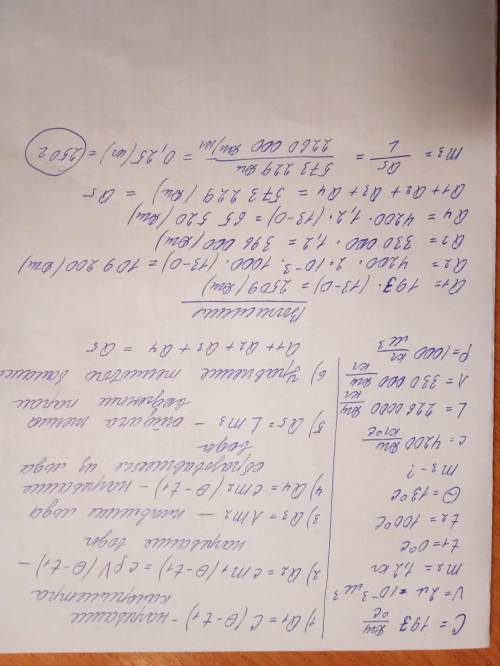 C = 193 Дж/°C
V = 2л = 10⁻³ м³
m₂ = 1,2 кг
t₁ = 0°C
t₂ = 100°C
Θ = 13°C
m₃ - ?
c = 4200 Дж/кг°C
L = 2260000 Дж/кг
λ = 330 000 Дж/кг
ρ = 1000 кг/м³
1) Q₁ = C(Θ - t₁) - нагревание
калориметра
2) Q₂ = cm₁(Θ - t₁) = cρV(Θ - t₁) -
нагревание воды
3) Q₃ = λm₂ - плавление льда
4) Q₄ = cm₂(Θ - t₁) - нагревание
образовавшейся из льда
воды
5) Q₅ = Lm₃ - отдача тепла
паром
6) Уравнение теплового баланса
Q₁ + Q₂ + Q₃ + Q₄ = Q₅
Q₁ = 193 · (13-0) = 2509 (Дж)
Q₂ = 4200 · 2 · 10⁻³ · 1000 · (13-0) = 109 200 (Дж)
Q₃ = 330 000 · 1,2 = 396 000 (Дж)
Q₄ = 4200 · 1,2 · (13-0) = 65 520 (Дж)
Q₁ + Q₂ + Q₃ + Q₄ = 573 229 (Дж) = Q₅
m₃ = Q₅/L = 573 229 Дж/2260 000 Дж/кг = 0,25 (кг) = 250 г